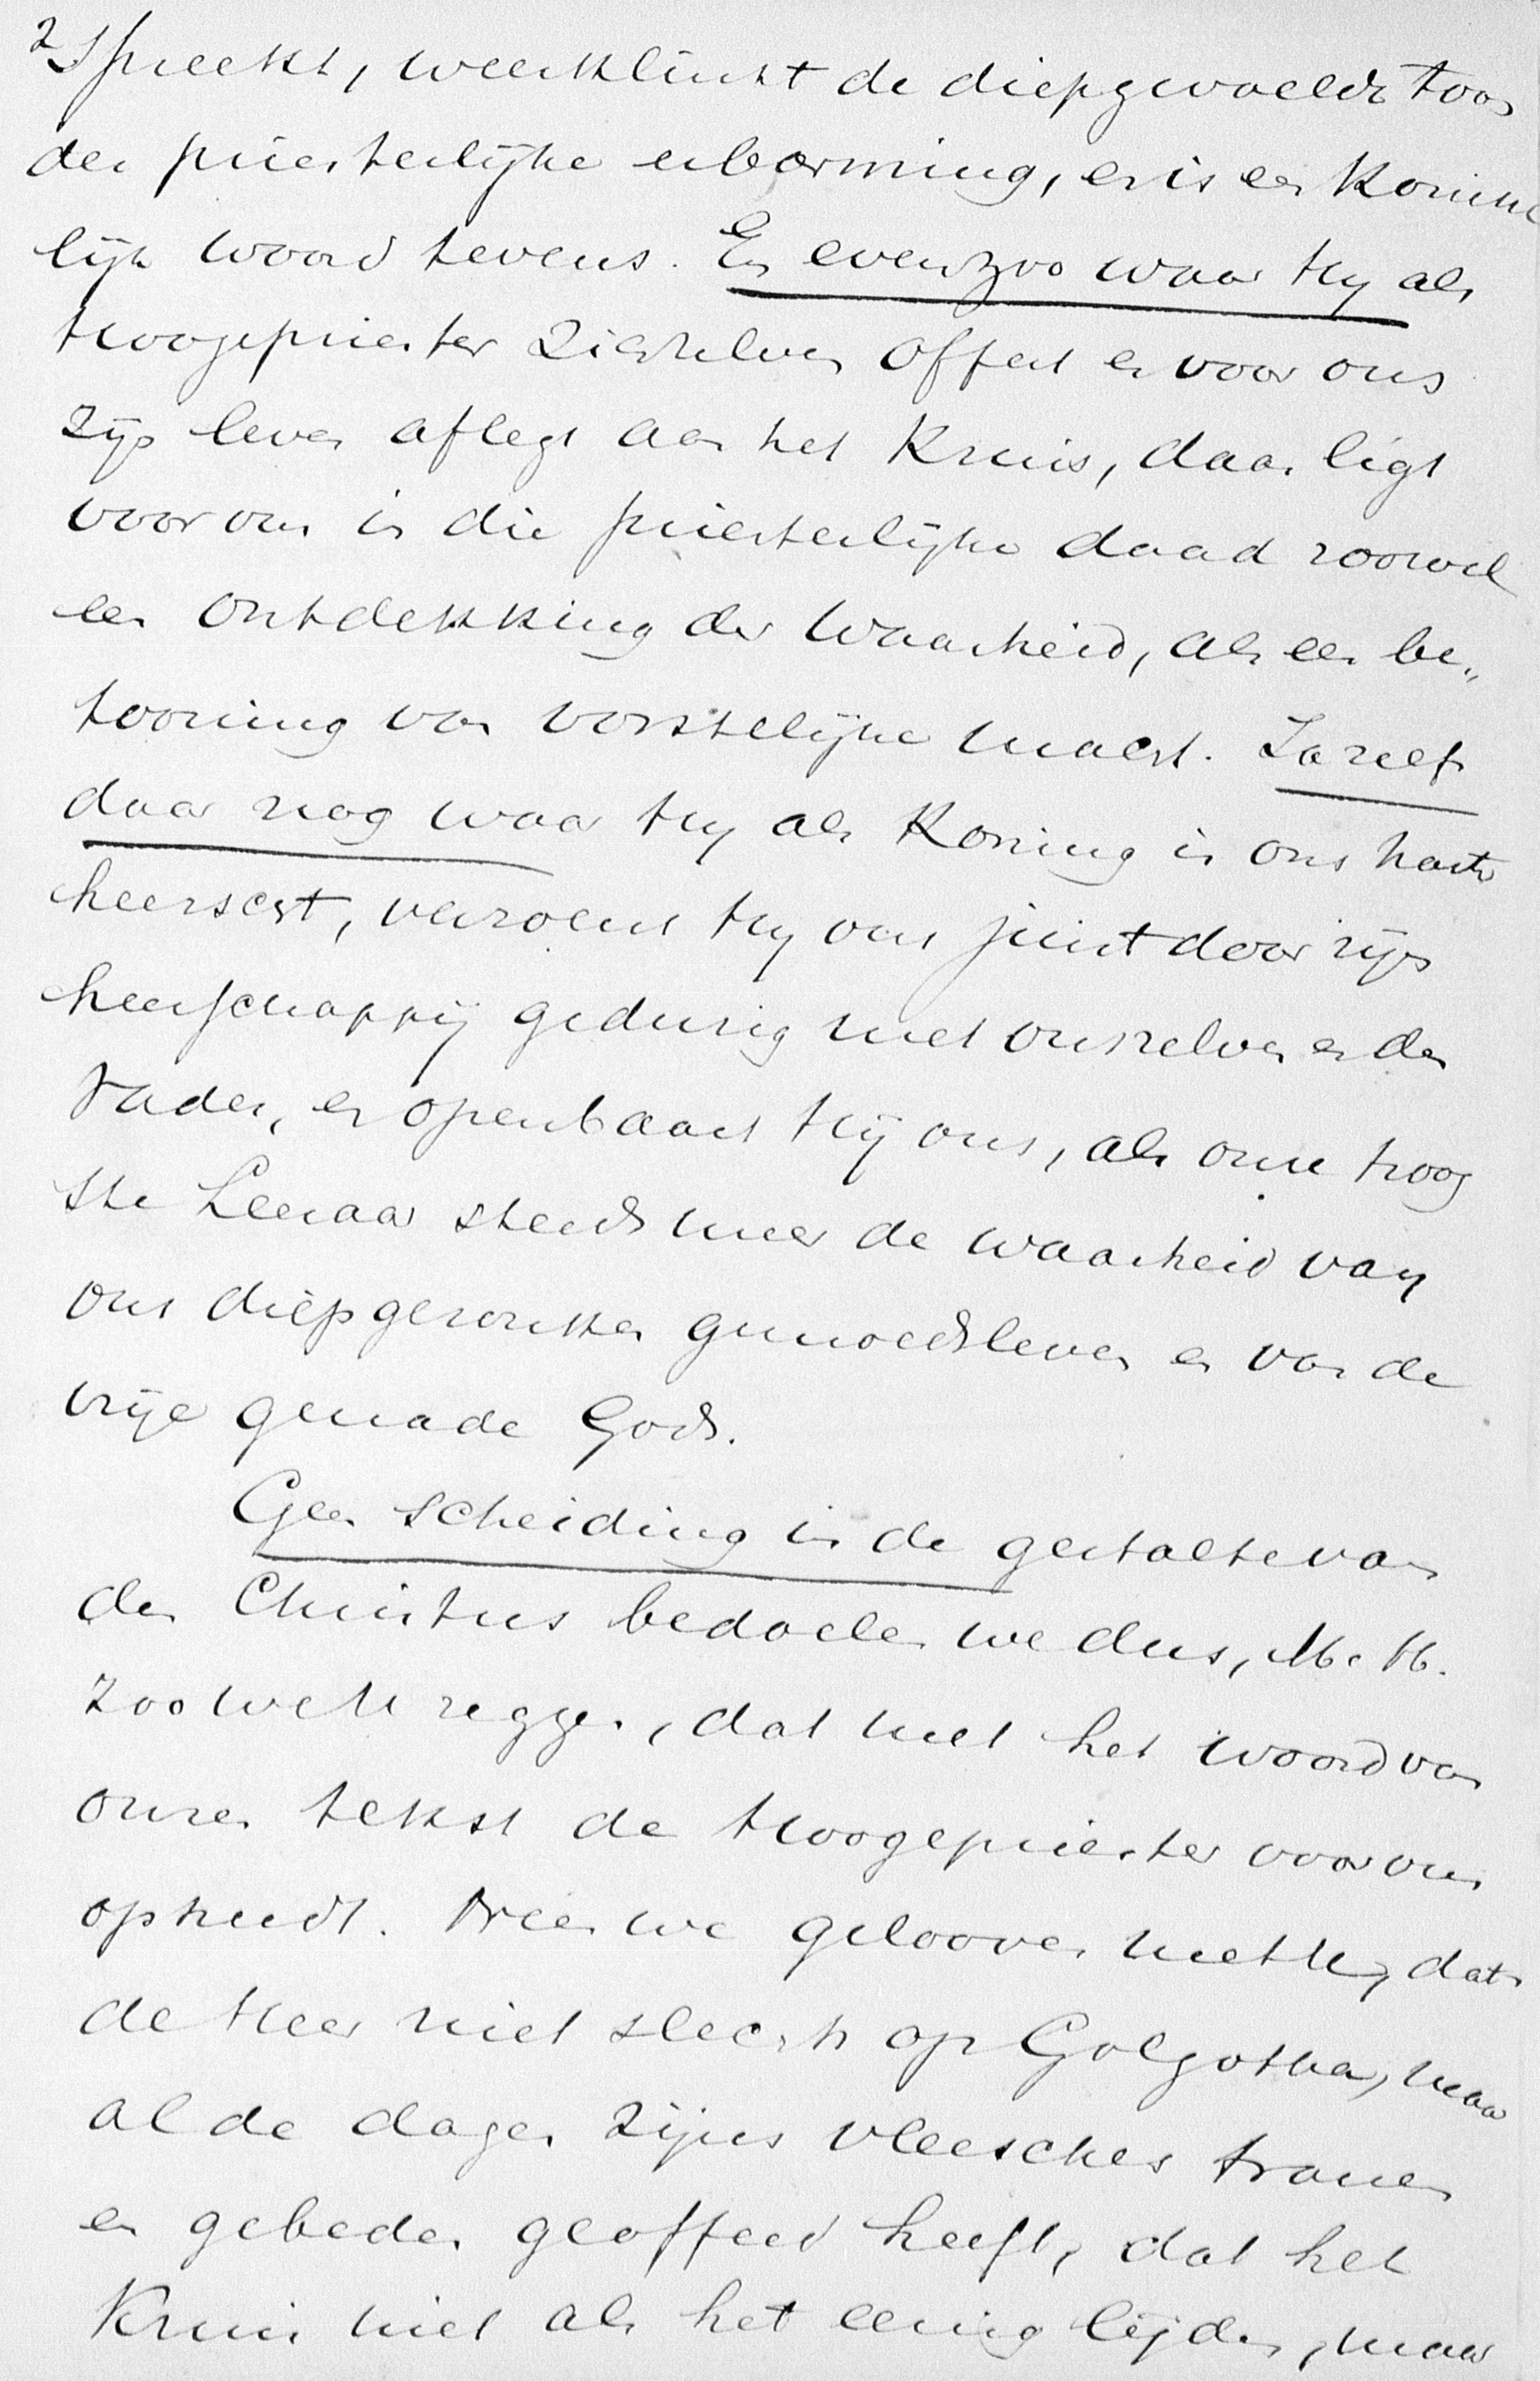 2 spreekt, weerklinkt de diepgevoelde toon
der priesterlijke erbarming, en is een Konink
lijk woord tevens. En evenzoo waar Hij als
Hoogepriester Zichzelven offert en voor ons
Zijn leven aflegt aan het Kruis, daar ligt
voor ons in die priesterlijke daad zoowel
een ontdekking der Waarheid, als een be„
tooning van vorstelijke macht. Ja zelfs
daar nog waar Hij als Koning in ons harte
heerscht, verzoent Hij ons juist door zijn
heerschappij gedurig met onszelven en den
Vader, en openbaart Hij ons, als onze hoog
ste Leeraar steeds meer de waarheid van
ons diepgezonken gemoedsleven en van de
vrije genade Gods.
Geen scheiding in de gestalte van
den Christus bedoelen we dus, M. H.
Zoo we U zeggen, dat met het woord van
onzen tekst de Hoogepriester voor ons
optreedt. Neen we gelooven met U, dat
de Heer niet slechts op Golgotha, maar
al de dagen Zijns vleesches tranen
en gebeden geofferd heeft, dat het
Kruis niet als het eenig lijden, maar